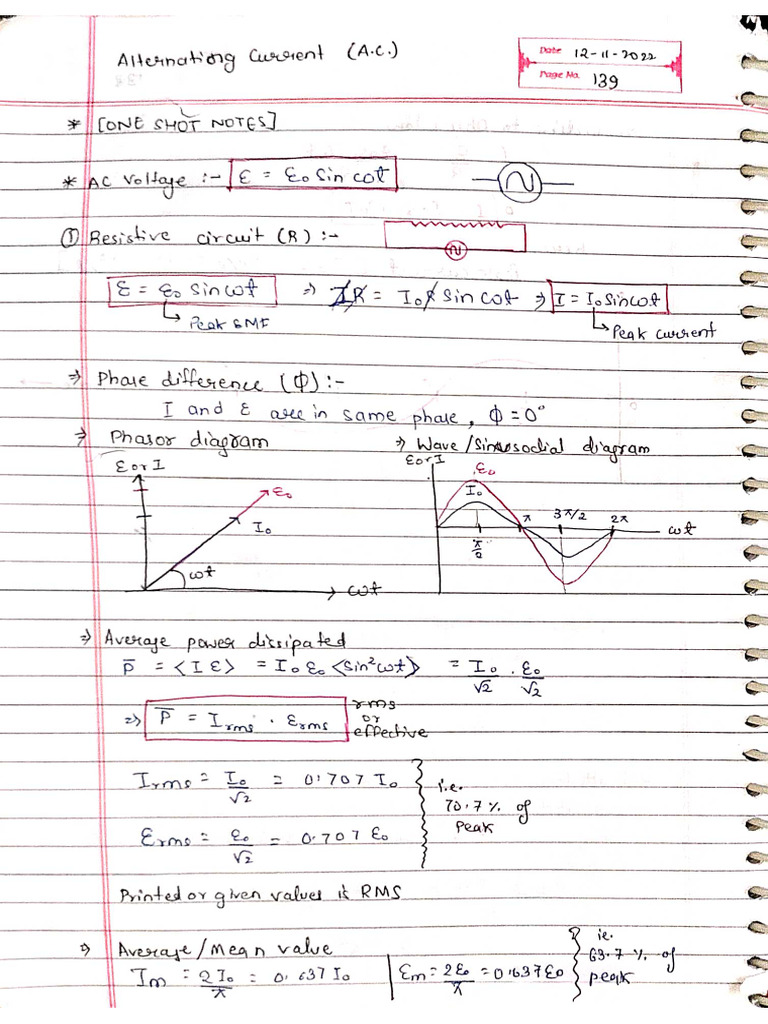 Alternationg Current (A.C.)
Date 12-11-2022
Page No. 139
* [ONE SHOT NOTES]
* AC Voltage :- ε = ε₀ Sin ωt
① Resistive circuit (R) :-
ε = ε₀ sin ωt ⇒ IR = I₀R Sin ωt ⇒ I = I₀ Sin ωt
↳ Peak EMF
↳ Peak current
⇒ Phase difference (Φ) :-
I and ε are in same phase, Φ = 0°
⇒ Phasor diagram
⇒ Wave/Sinusodial diagram
ε or I
ε₀
I₀
ωt
ωt
ε or I
ε₀
I₀
π/2
π
3π/2
2π
ωt
⇒ Average power dissipated
P̅ = <I ε> = I₀ ε₀ <Sin²ωt> = I₀/√2 . ε₀/√2
⇒ P̅ = Irms . εrms
rms
or
effective
Irms = I₀/√2 = 0.707 I₀
εrms = ε₀/√2 = 0.707 ε₀
i.e.
70.7 % of
Peak
Printed or given values is RMS
⇒ Average/Mean value
Im = 2I₀/π = 0.637 I₀ | εm = 2ε₀/π = 0.637 ε₀
ie.
63.7 % of
peak